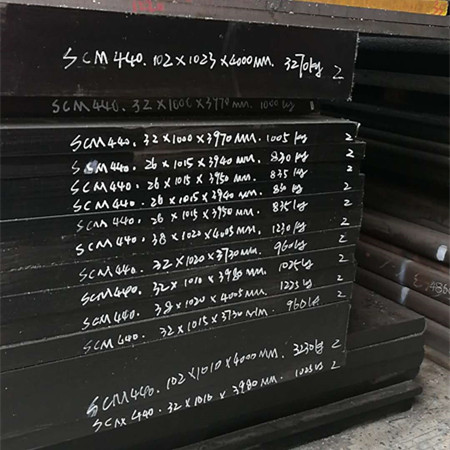 SCM440. 102×1023×4000MM. 3270kg 2
SCM440. 32×1000×3970MM. 1000kg 1
SCM440. 32×1000×3970MM. 1005kg 2
SCM440. 26×1015×3940MM. 830kg 2
SCM440. 26×1015×3950MM. 835kg 2
SCM440. 26×1015×3940MM. 830kg 2
SCM440. 26×1015×3950MM. 835kg 2
SCM440. 38×1020×4005MM. 1230kg 2
SCM440. 32×1020×3730MM. 960kg 2
SCM440. 32×1010×3980MM. 1025kg 2
SCM440. 38×1020×4005MM. 1225kg 2
SCM440. 32×1015×3730MM. 960kg 2
SCM440. 102×1010×4000MM. 3230kg 2
SCM440. 32×1010×3980MM. 1025kg 2